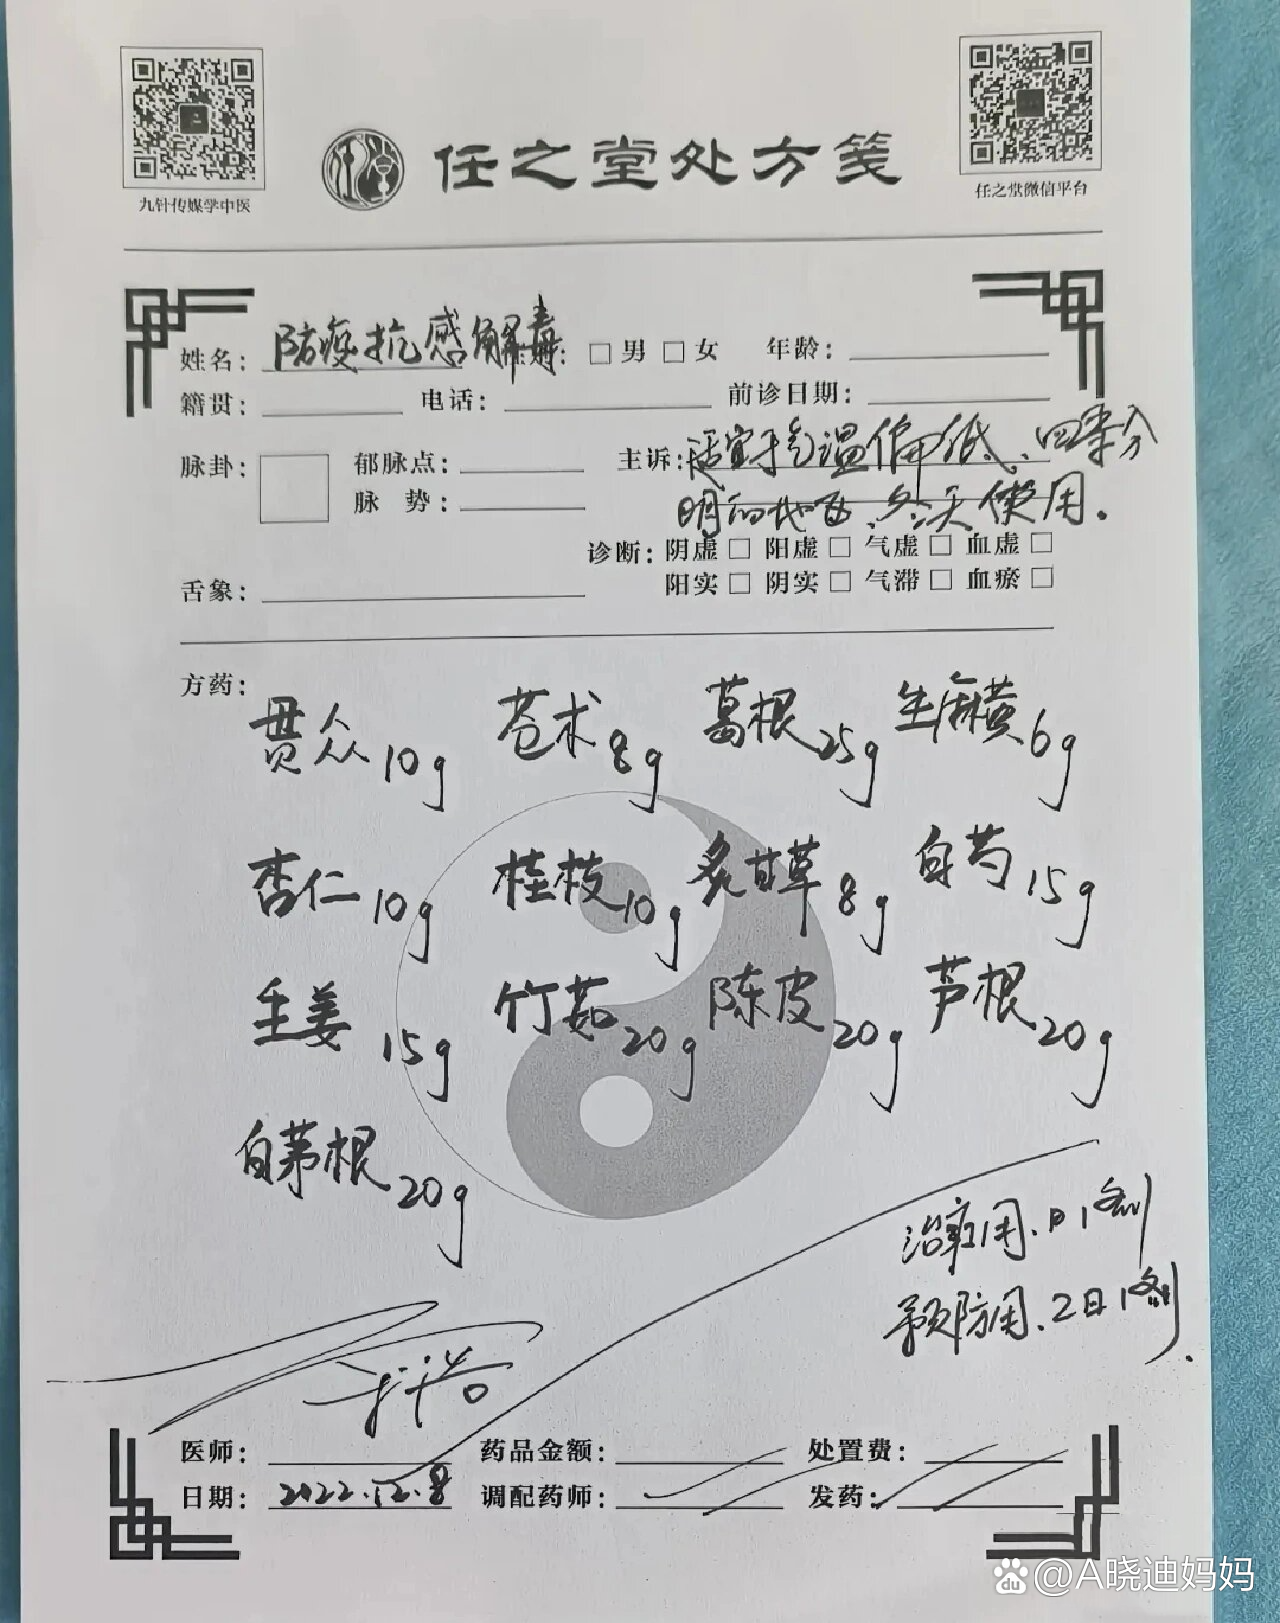 任之堂处方笺
九针传媒学中医
任之堂微信平台
姓名：防疫抗感解毒 □男 □女 年龄：
籍贯： 电话： 前诊日期：
脉卦： 郁脉点： 主诉：适宜于气温偏低、四季分
脉势： 明的地西、冬天使用.
诊断：阴虚□ 阳虚□ 气虚□ 血虚□
舌象： 阳实□ 阴实□ 气滞□ 血瘀□
方药：
贯众10g 苍术8g 葛根25g 生麻黄6g
杏仁10g 桂枝10g 炙甘草8g 白芍15g
生姜15g 竹茹20g 陈皮20g 芦根20g
白茅根20g
治疗用.日1剂
预防用.2日1剂.
医师： 药品金额： 处置费：
日期：2022.12.8 调配药师： 发药：
Baidu @A晓迪妈妈